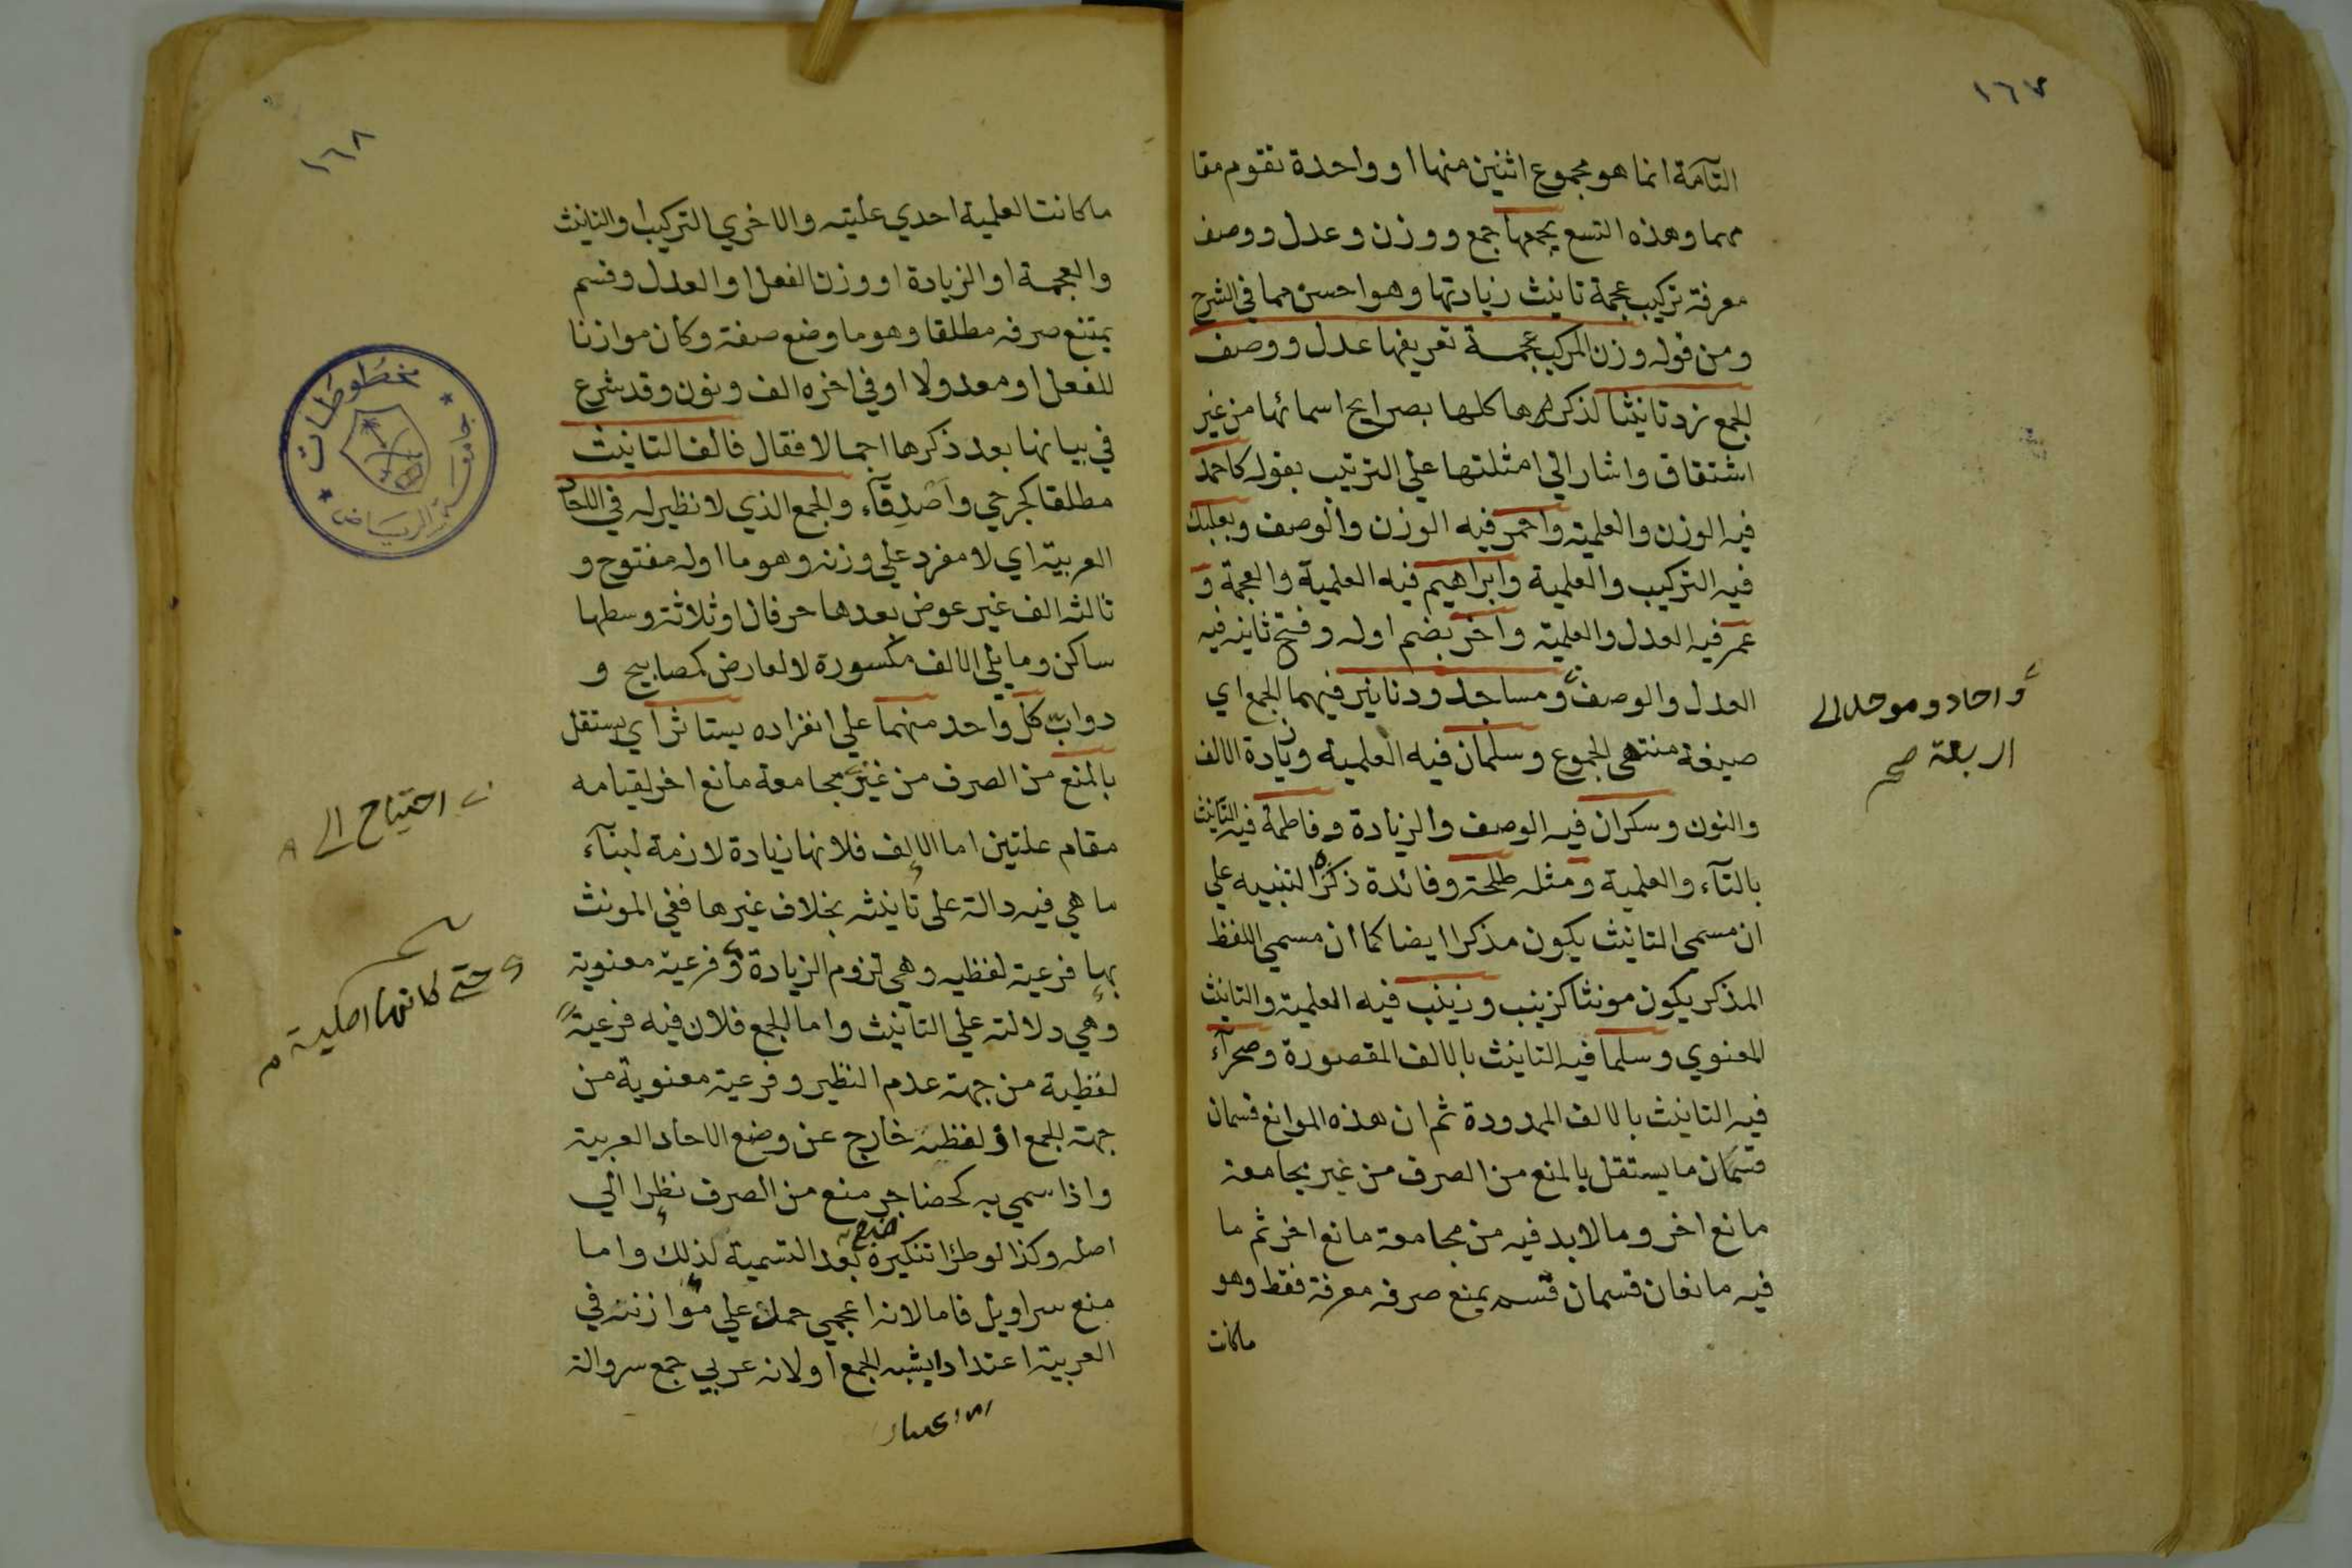 ١٦٧
التآمة انما هو مجموع اثنين منها او واحدة تقوم مقا
مهما وهذه التسع يجمعها جمع ووزن وعدل ووصف
معرفة تركيب عجمة تانيث زيادتها وهو احسن مما في الشرح
ومن قوله وزن المركب عجمة تعريفها عدل ووصف
الجمع زد تانيثا لذكره لها كلها بصرايح اسمائها من غير
اشتقاق واشار الي امثلتها علي الترتيب بقوله كاحمد
فيه الوزن والعلمية واحمر فيه الوزن والوصف وبعلبك
فيه التركيب والعلمية وابراهيم فيه العلمية والعجمة و
عمر فيه العدل والعلمية واخر بضم اوله وفتح ثانيه فيه
العدل والوصف ومساجد ودنانير فيهما الجمع اي
صيغة منتهى الجموع وسلمان فيه العلمية وزيادة الالف
والنون وسكران فيه الوصف والزيادة وفاطمة فيه التانيث
بالتآء والعلمية ومثله طلحة وفائدة ذكره التنبيه علي
ان مسمى التانيث يكون مذكرا ايضا كما ان مسمي اللفظ
المذكر يكون مونثا كزينب وزينب فيه العلمية والتانيث
المعنوي وسلما فيه التانيث بالالف المقصورة وصحرآء
فيه التانيث بالالف الممدودة ثم ان هذه الموانع قسمان
قسمان ما يستقل بالمنع من الصرف من غير مجامعة
مانع اخر وما لابد فيه من مجامعة مانع اخر ثم ما
فيه مانعان قسمان قسم يمنع صرفه معرفة فقط وهو
ماكانت
واحاد وموحد الى
اربعة صح
١٦٨
ماكانت العلمية احدي علتيه والاخري التركيب او التانيث
والعجمة او الزيادة او وزن الفعل او العدل وقسم
يمتنع صرفه مطلقا وهو ما وضع صفة وكان موازنا
للفعل او معدولا او في اخره الف ونون وقد شرع
في بيانها بعد ذكرها اجمالا فقال فالف التانيث
مطلقا كجرحي واصدقآء والجمع الذي لا نظير له في اللحاد
العربية اي لا مفرد علي وزنه وهو ما اوله مفتوح و
ثالثه الف غير عوض بعدها حرفان او ثلاثة وسطها
ساكن وما يلي الالف مكسورة لا لعارض كمصابيح و
دواب كل واحد منهما علي انفراده يستاثر اي يستقل
بالمنع من الصرف من غير مجامعة مانع اخر لقيامه
مقام علتين اما الالف فلانها زيادة لازمة لبنآء
ما هي فيه دالة على تانيثه بخلاف غيرها ففي المونث
بها فرعية لفظيه وهي لزوم الزيادة وفرعية معنوية
وهي دلالته علي التانيث واما الجمع فلان فيه فرعية
لفظية من جهة عدم النظير وفرعية معنوية من
جهة الجمع او لفظية خارج عن وضع الاحاد العربية
واذا سمي به كحضاجر منع من الصرف نظرا الي
اصله وكذا لو طرا تنكيره بعد التسمية لذلك واما
منع سراويل فاما لانه اعجمي حمل علي موازنه في
العربية اعتدادا بشبه الجمع او لانه عربي جمع سروالة
احتياج الى
حتى كانها اصلية
مخطوطات
جامعة الرياض